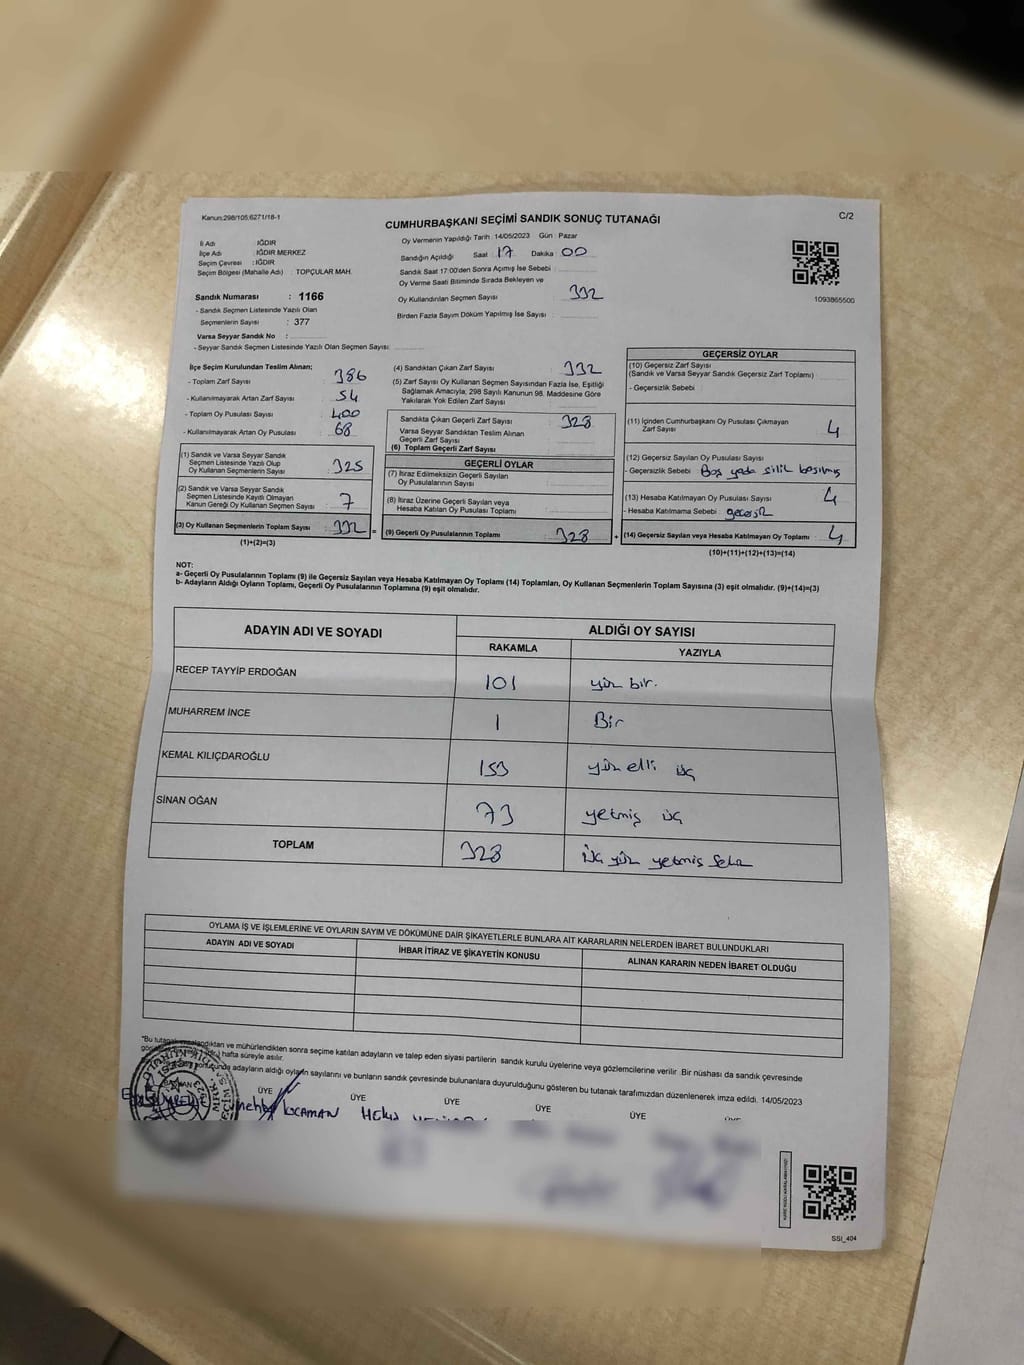 Kanun:298/105;6271/18-1
CUMHURBAŞKANI SEÇİMİ SANDIK SONUÇ TUTANAĞI
C/2
İl Adı : IĞDIR
İlçe Adı : IĞDIR MERKEZ
Seçim Çevresi : IĞDIR
Seçim Bölgesi (Mahalle Adı) : TOPÇULAR MAH.
Sandık Numarası : 1166
- Sandık Seçmen Listesinde Yazılı Olan
Seçmenlerin Sayısı : 377
Varsa Seyyar Sandık No :
- Seyyar Sandık Seçmen Listesinde Yazılı Olan Seçmen Sayısı:
Oy Vermenin Yapıldığı Tarih : 14/05/2023 Gün : Pazar
Sandığın Açıldığı Saat 17 Dakika 00
Sandık Saat 17:00'den Sonra Açımış İse Sebebi :
Oy Verme Saati Bitiminde Sırada Bekleyen ve
Oy Kullandırılan Seçmen Sayısı : 332
Birden Fazla Sayım Döküm Yapılmış İse Sayısı :
1093865500
İlçe Seçim Kurulundan Teslim Alınan;
- Toplam Zarf Sayısı : 386
- Kullanılmayarak Artan Zarf Sayısı : 54
- Toplam Oy Pusulası Sayısı : 400
- Kullanılmayarak Artan Oy Pusulası : 68
(1) Sandık ve Varsa Seyyar Sandık
Seçmen Listesinde Yazılı Olup
Oy Kullanan Seçmenlerin Sayısı : 325
(2) Sandık ve Varsa Seyyar Sandık
Seçmen Listesinde Kayıtlı Olmayan
Kanun Gereği Oy Kullanan Seçmen Sayısı : 7
(3) Oy Kullanan Seçmenlerin Toplam Sayısı : 332 =
(1)+(2)=(3)
(4) Sandıktan Çıkan Zarf Sayısı : 332
(5) Zarf Sayısı Oy Kullanan Seçmen Sayısından Fazla İse, Eşitliği
Sağlamak Amacıyla; 298 Sayılı Kanunun 98. Maddesine Göre
Yakılarak Yok Edilen Zarf Sayısı :
Sandıkta Çıkan Geçerli Zarf Sayısı : 328
Varsa Seyyar Sandıktan Teslim Alınan
Geçerli Zarf Sayısı :
(6) Toplam Geçerli Zarf Sayısı :
GEÇERLİ OYLAR
(7) İtiraz Edilmeksizin Geçerli Sayılan
Oy Pusulalarının Sayısı :
(8) İtiraz Üzerine Geçerli Sayılan veya
Hesaba Katılan Oy Pusulası Toplamı :
(9) Geçerli Oy Pusulalarının Toplamı : 328 +
GEÇERSİZ OYLAR
(10) Geçersiz Zarf Sayısı
(Sandık ve Varsa Seyyar Sandık Geçersiz Zarf Toplamı) :
- Geçersizlik Sebebi :
(11) İçinden Cumhurbaşkanı Oy Pusulası Çıkmayan
Zarf Sayısı : 4
(12) Geçersiz Sayılan Oy Pusulası Sayısı :
- Geçersizlik Sebebi : Boş yada silik basılmış
(13) Hesaba Katılmayan Oy Pusulası Sayısı : 4
- Hesaba Katılmama Sebebi : geçersiz
(14) Geçersiz Sayılan veya Hesaba Katılmayan Oy Toplamı : 4
(10)+(11)+(12)+(13)=(14)
NOT:
a- Geçerli Oy Pusulalarının Toplamı (9) ile Geçersiz Sayılan veya Hesaba Katılmayan Oy Toplamı (14) Toplamları, Oy Kullanan Seçmenlerin Toplam Sayısına (3) eşit olmalıdır. (9)+(14)=(3)
b- Adayların Aldığı Oyların Toplamı, Geçerli Oy Pusulalarının Toplamına (9) eşit olmalıdır.
ADAYIN ADI VE SOYADI
ALDIĞI OY SAYISI
RAKAMLA YAZIYLA
RECEP TAYYİP ERDOĞAN 101 yüz bir.
MUHARREM İNCE 1 Bir
KEMAL KILIÇDAROĞLU 153 yüz elli üç
SİNAN OĞAN 73 yetmiş üç
TOPLAM 328 Üç yüz yetmiş sekiz
OYLAMA İŞ VE İŞLEMLERİNE VE OYLARIN SAYIM VE DÖKÜMÜNE DAİR ŞİKAYETLERLE BUNLARA AİT KARARLARIN NELERDEN İBARET BULUNDUKLARI
ADAYIN ADI VE SOYADI İHBAR İTİRAZ VE ŞİKAYETİN KONUSU ALINAN KARARIN NEDEN İBARET OLDUĞU
*Bu tutanak ve mühürlendikten sonra seçime katılan adayların ve talep eden siyasi partilerin sandık kurulu üyelerine veya gözlemcilerine verilir. Bir nüshası da sandık çevresinde
hafta süreyle asılır.
adayların aldığı oyların sayılarını ve bunların sandık çevresinde bulunanlara duyurulduğunu gösteren bu tutanak tarafımızdan düzenlenerek imza edildi. 14/05/2023
ÜYE ÜYE ÜYE ÜYE ÜYE ÜYE
KOCAMAN
SSI_404